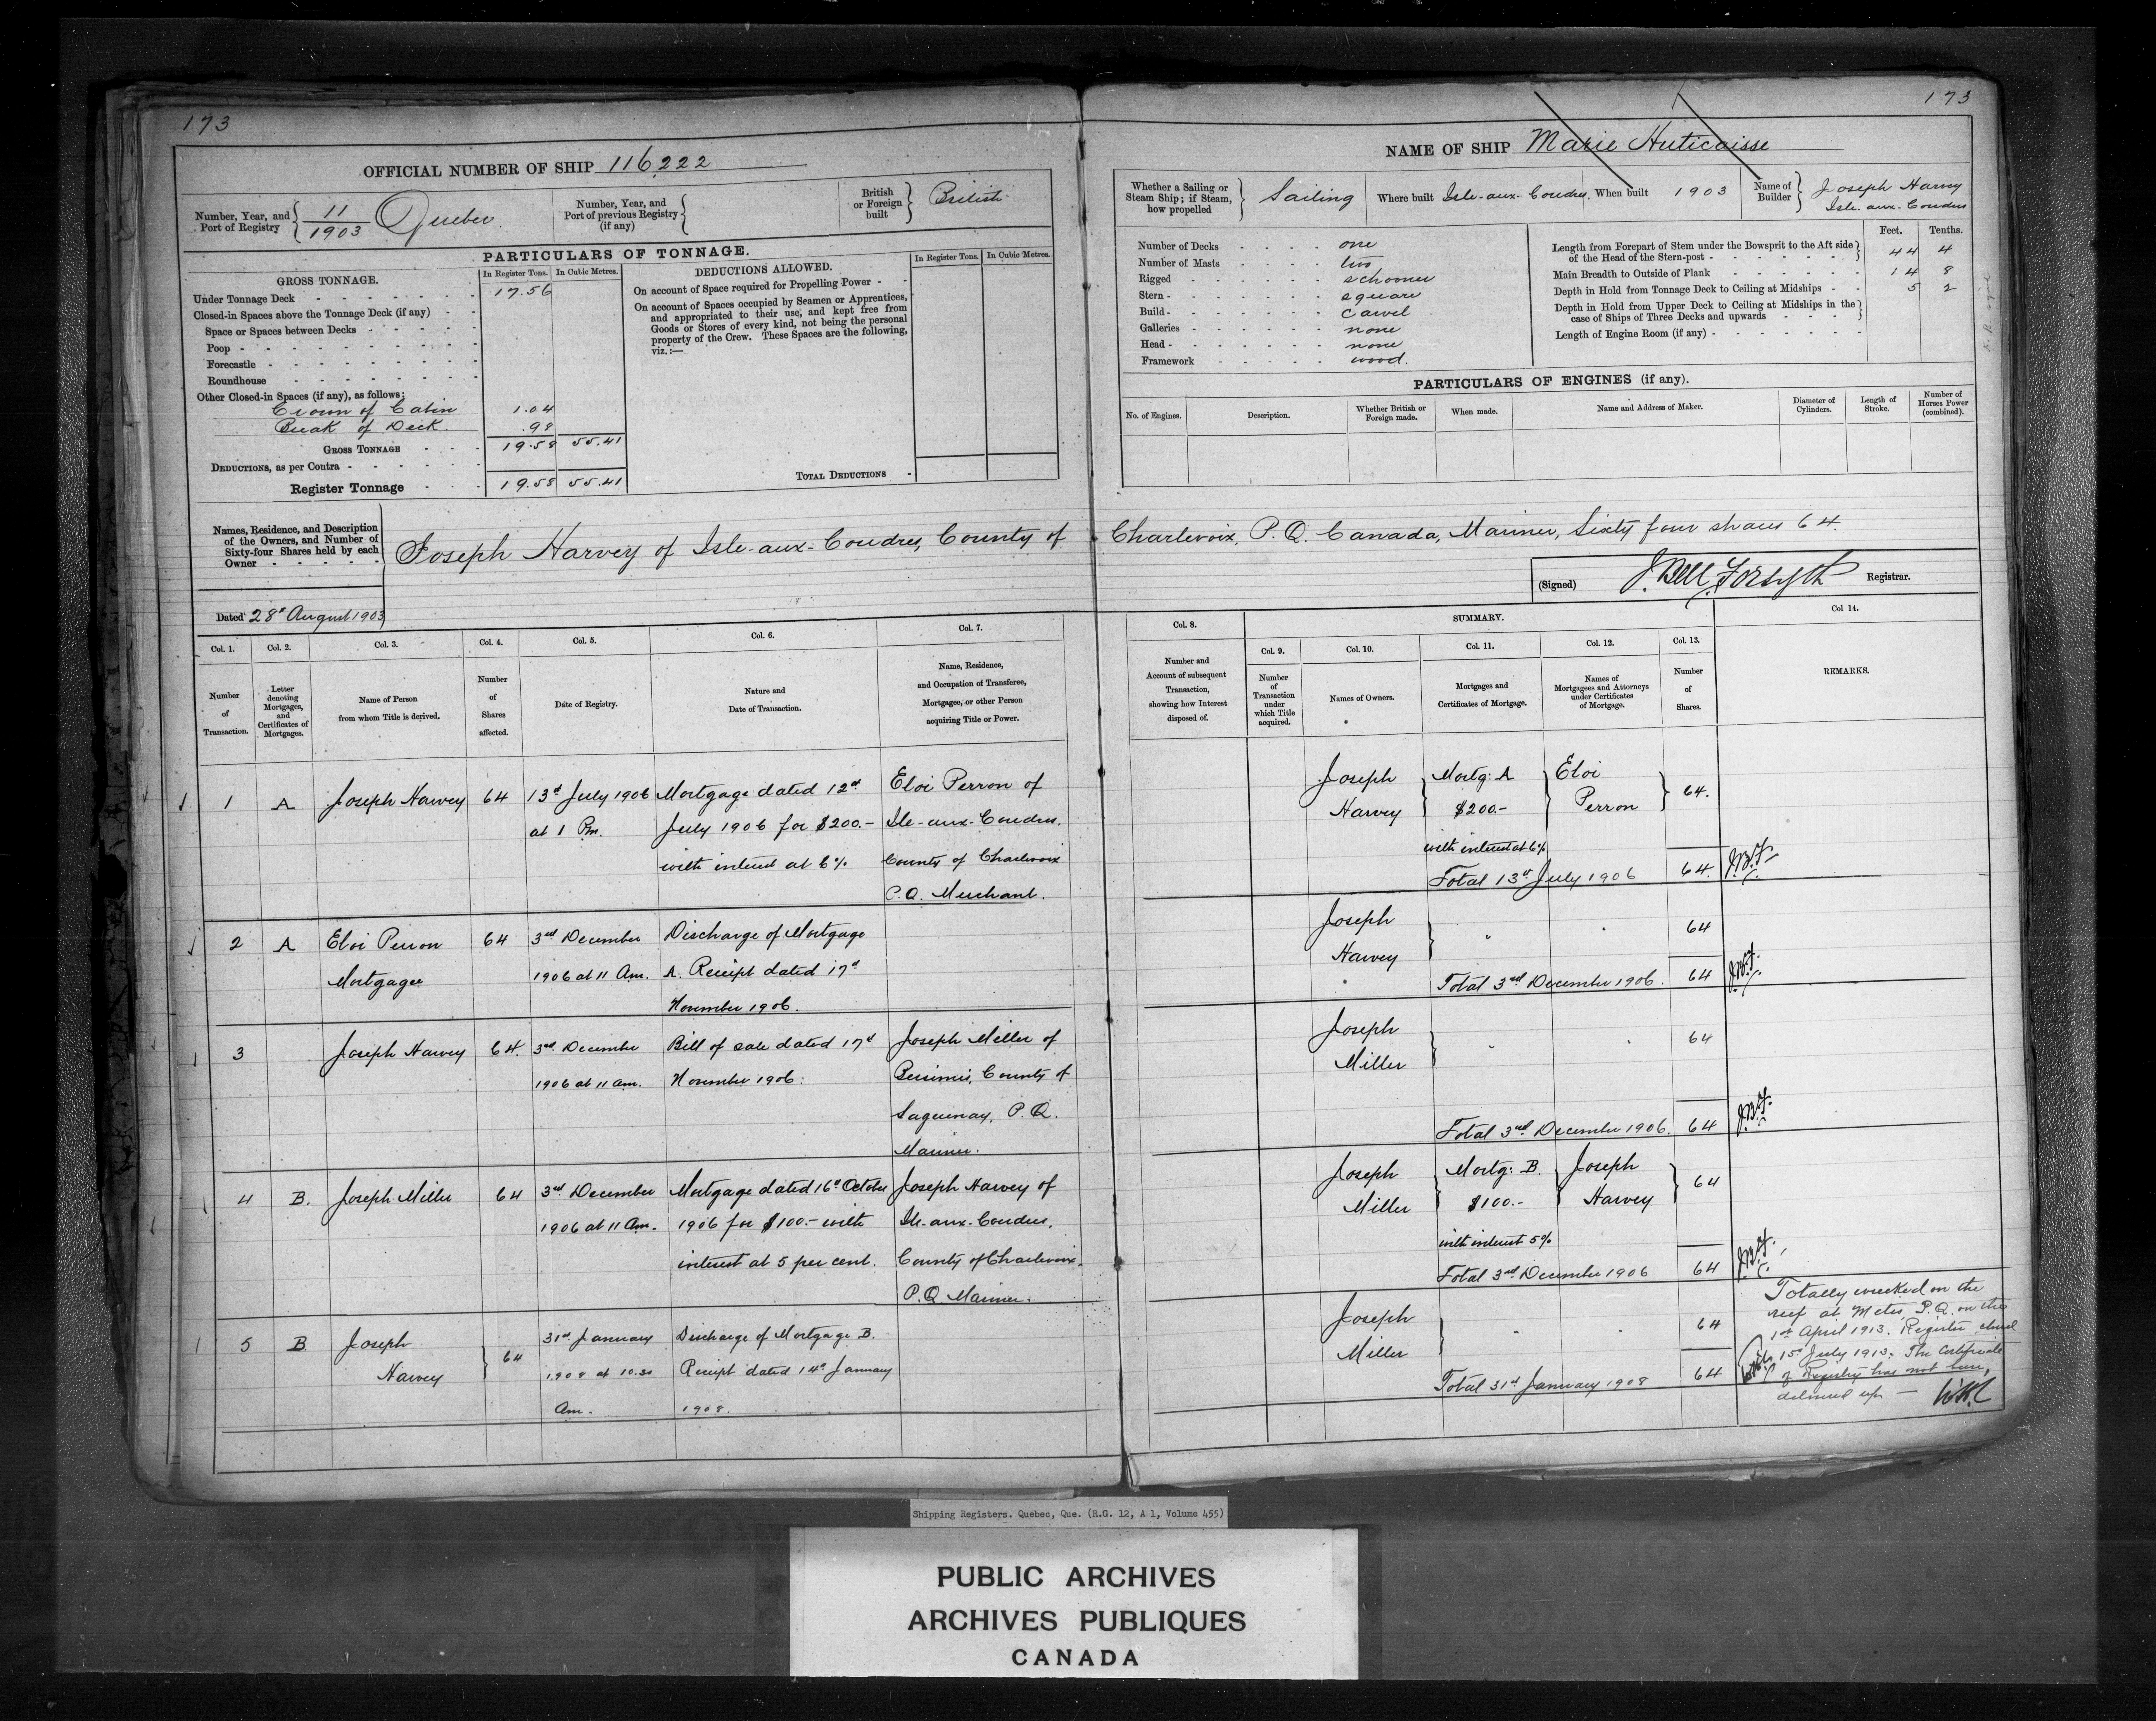 173
OFFICIAL NUMBER OF SHIP 116,222
Number, Year, and Port of Registry 11/1903 Quebec.
Number, Year, and Port of previous Registry (if any)
British or Foreign built British
PARTICULARS OF TONNAGE.
GROSS TONNAGE.
In Register Tons. In Cubic Metres.
Under Tonnage Deck 17.56
Closed-in Spaces above the Tonnage Deck (if any)
Space or Spaces between Decks
Poop
Forecastle
Roundhouse
Other Closed-in Spaces (if any), as follows:
Crown of Cabin 1.04
Break of Deck. .98
GROSS TONNAGE 19.58 55.41
DEDUCTIONS, as per Contra
Register Tonnage 19.58 55.41
DEDUCTIONS ALLOWED.
In Register Tons. In Cubic Metres.
On account of Space required for Propelling Power
On account of Spaces occupied by Seamen or Apprentices,
and appropriated to their use, and kept free from
Goods or Stores of every kind, not being the personal
property of the Crew. These Spaces are the following,
viz.:—
TOTAL DEDUCTIONS
173
NAME OF SHIP Marie
Whether a Sailing or Steam Ship; if Steam, how propelled Sailing
Where built Isle-aux-Coudres.
When built 1903
Name of Builder Joseph Harvey
Isle-aux-Coudres
Number of Decks one
Number of Masts two
Rigged schooner
Stern square
Build carvel
Galleries none
Head none
Framework wood.
Feet. Tenths.
Length from Forepart of Stem under the Bowsprit to the Aft side
of the Head of the Stern-post 44 4
Main Breadth to Outside of Plank 14 8
Depth in Hold from Tonnage Deck to Ceiling at Midships 5 2
Depth in Hold from Upper Deck to Ceiling at Midships in the
case of Ships of Three Decks and upwards
Length of Engine Room (if any)
PARTICULARS OF ENGINES (if any).
No. of Engines. Description. Whether British or Foreign made. When made. Name and Address of Maker. Diameter of Cylinders. Length of Stroke. Number of Horses Power (combined).
Names, Residence, and Description
of the Owners, and Number of
Sixty-four Shares held by each
Owner
Joseph Harvey of Isle-aux-Coudres, County of Charlevoix, P.Q. Canada, Mariner, Sixty four shares 64.
Dated 28th August 1903
(Signed) J. Bell Forsyth Registrar.
Col. 1. Col. 2. Col. 3. Col. 4. Col. 5. Col. 6. Col. 7.
Number of Transaction.
Letter denoting Mortgages, and Certificates of Mortgages.
Name of Person from whom Title is derived.
Number of Shares affected.
Date of Registry.
Nature and Date of Transaction.
Name, Residence, and Occupation of Transferee, Mortgagee, or other Person acquiring Title or Power.
Col. 8.
Number and Account of subsequent Transaction, showing how Interest disposed of.
SUMMARY.
Col. 9. Col. 10. Col. 11. Col. 12. Col. 13. Col 14.
Number of Transaction under which Title acquired.
Names of Owners.
Mortgages and Certificates of Mortgage.
Names of Mortgagees and Attorneys under Certificates of Mortgage.
Number of Shares.
REMARKS.
1 A Joseph Harvey 64 13th July 1906 Mortgage dated 12th Eloi Perron of
at 1 Pm. July 1906 for $200.- Isle-aux-Coudres.
with interest at 6% County of Charlevoix
P.Q. Merchant.
Joseph Mortg: A Eloi
Harvey $200.- Perron 64.
with interest at 6%
Total 13th July 1906 64. J.B.F.
2 A Eloi Perron 64 3rd December Discharge of Mortgage
Mortgagee 1906 at 11 Am. A. Receipt dated 17th
November 1906.
Joseph
Harvey " " 64
Total 3rd December 1906. 64 J.B.F.
3 Joseph Harvey 64. 3rd December Bill of sale dated 17th Joseph Miller of
1906 at 11 am. November 1906. Bersimis, County of
Saguenay, P.Q.
Mariner.
Joseph
Miller " " 64
Total 3rd December 1906. 64 J.B.F.
4 B. Joseph Miller 64 3rd December Mortgage dated 16th October Joseph Harvey of
1906 at 11 Am. 1906 for $100.- with Isle-aux-Coudres,
interest at 5 per cent. County of Charlevoix.
P.Q. Mariner.
Joseph Mortg: B. Joseph
Miller $100.- Harvey 64
with interest 5%
Total 3rd December 1906 64 J.B.F.
5 B Joseph 31st January Discharge of Mortgage B.
Harvey 64 1908 at 10.30 Receipt dated 14th January
Am. 1908.
Joseph
Miller " " 64
Total 31st January 1908 64
Totally wrecked on the
reef at Metis, P.Q. on the
1st April 1913. Register closed
15th July 1913. The Certificate
of Registry has not been
delivered up —
Shipping Registers. Quebec, Que. (R.G. 12, A 1, Volume 455)
PUBLIC ARCHIVES
ARCHIVES PUBLIQUES
CANADA